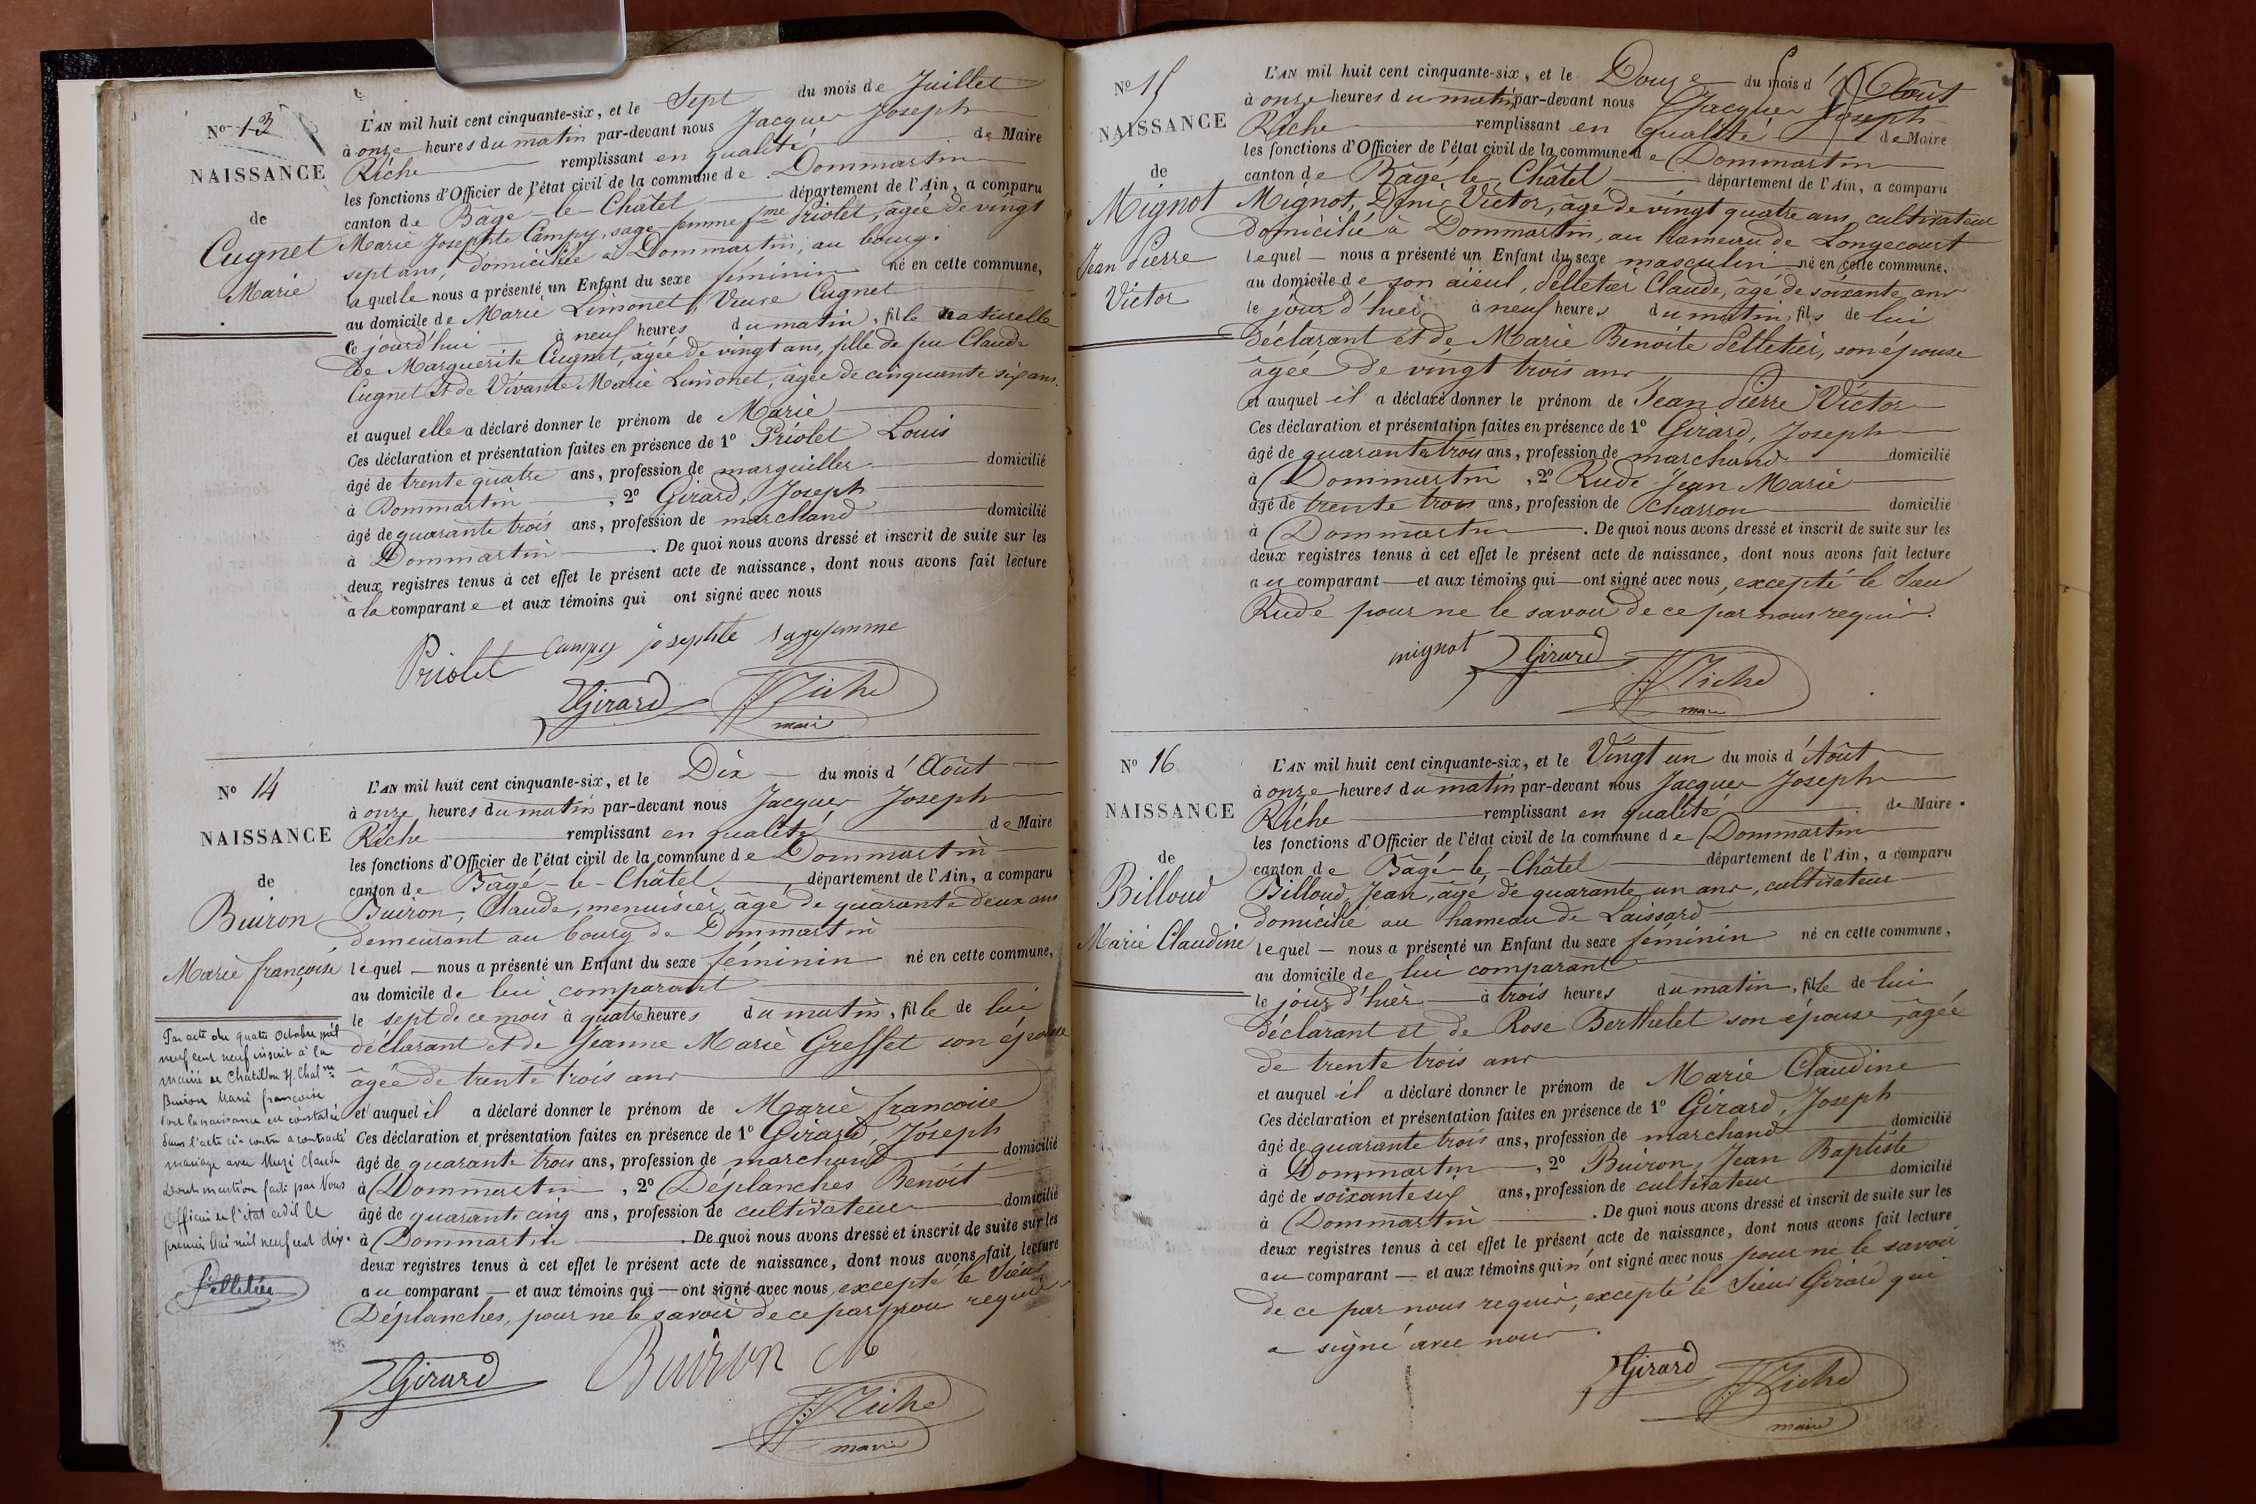 Nº 13
NAISSANCE
de
Cugnet
Marie
L'AN mil huit cent cinquante-six, et le Sept du mois de Juillet
à onze heures du matin par-devant nous Jacques Joseph
Riche remplissant en qualité de Maire
les fonctions d'Officier de l'état civil de la commune de Dommartin
canton de Bâgé-le-Châtel département de l'Ain, a comparu
Marie Josephte Campy, sage-femme fme Priolet, âgée de vingt
sept ans, domiciliée à Dommartin, au bourg.
laquelle nous a présenté un Enfant du sexe féminin né en cette commune,
au domicile de Marie Limonet, Veuve Cugnet
ce jourd'hui à neuf heures du matin, fille naturelle
de Marguerite Cugnet, âgée de vingt ans, fille de feu Claude
Cugnet et de Vivante Marie Limonet, âgée de cinquante six ans.
et auquel elle a déclaré donner le prénom de Marie
Ces déclaration et présentation faites en présence de 1º Priolet Louis
âgé de trente quatre ans, profession de marguiller domicilié
à Dommartin, 2º Girard, Joseph
âgé de quarante trois ans, profession de marchand domicilié
à Dommartin. De quoi nous avons dressé et inscrit de suite sur les
deux registres tenus à cet effet le présent acte de naissance, dont nous avons fait lecture
a la comparante et aux témoins qui ont signé avec nous
Priolet Campy josephte sagefamme
Girard Riche
maire
Nº 14
NAISSANCE
de
Buiron
Marie françoise
L'AN mil huit cent cinquante-six, et le Dix du mois d'Août
à onze heures du matin par-devant nous Jacques Joseph
Riche remplissant en qualité de Maire
les fonctions d'Officier de l'état civil de la commune de Dommartin
canton de Bâgé-le-Châtel département de l'Ain, a comparu
Buiron, Claude, menuisier, âgé de quarante deux ans
demeurant au bourg de Dommartin
lequel nous a présenté un Enfant du sexe féminin né en cette commune,
au domicile de lui comparant
le sept de ce mois à quatre heures du matin, fille de lui
déclarant et de Jeanne Marie Greffet son épouse
âgée de trente trois ans
et auquel il a déclaré donner le prénom de Marie françoise
Ces déclaration et présentation faites en présence de 1º Girard, Joseph
âgé de quarante trois ans, profession de marchand domicilié
à Dommartin, 2º Déplanches Benoît
âgé de quarante cinq ans, profession de cultivateur domicilié
à Dommartin. De quoi nous avons dressé et inscrit de suite sur les
deux registres tenus à cet effet le présent acte de naissance, dont nous avons fait lecture
au comparant et aux témoins qui ont signé avec nous, excepté le Sieur
Déplanches, pour ne le savoir de ce par nous requis
Girard Buiron Riche
maire
Par acte du quatre Octobre mil
neuf cent neuf inscrit à la
mairie de Chatillon s/ Chalne
Buiron Marie françoise
dont la naissance est constatée
dans l'acte ci-contre a contracté
mariage avec Claude
Dont mention faite par Nous
Officier de l'état civil le
premier Mai mil neuf cent dix.
Pelletier
Nº 15
NAISSANCE
de
Mignot
Jean Pierre
Victor
L'AN mil huit cent cinquante-six, et le Douze du mois d'Août
à onze heures du matin par-devant nous Jacques Joseph
Riche remplissant en qualité de Maire
les fonctions d'Officier de l'état civil de la commune de Dommartin
canton de Bâgé-le-Châtel département de l'Ain, a comparu
Mignot, Denis Victor, âgé de vingt quatre ans, cultivateur
domicilié à Dommartin, au hameau de Longecourt
lequel nous a présenté un Enfant du sexe masculin né en cette commune,
au domicile de son aïeul, Pelletier Claude, âgé de soixante ans
le jour d'hier à neuf heures du matin, fils de lui
déclarant et de Marie Benoite Pelletier, son épouse
âgée de vingt trois ans
et auquel il a déclaré donner le prénom de Jean Pierre Victor
Ces déclaration et présentation faites en présence de 1º Girard, Joseph
âgé de quarante trois ans, profession de marchand domicilié
à Dommartin, 2º Rude Jean Marie
âgé de trente trois ans, profession de charron domicilié
à Dommartin. De quoi nous avons dressé et inscrit de suite sur les
deux registres tenus à cet effet le présent acte de naissance, dont nous avons fait lecture
au comparant et aux témoins qui ont signé avec nous, excepté le Sieur
Rude pour ne le savoir de ce par nous requis.
mignot Girard
Riche
maire
Nº 16
NAISSANCE
de
Billoud
Marie Claudine
L'AN mil huit cent cinquante-six, et le Vingt un du mois d'Août
à onze heures du matin par-devant nous Jacques Joseph
Riche remplissant en qualité de Maire.
les fonctions d'Officier de l'état civil de la commune de Dommartin
canton de Bâgé-le-Châtel département de l'Ain, a comparu
Billoud, Jean, âgé de quarante un ans, cultivateur
domicilié au hameau de Laissard
lequel nous a présenté un Enfant du sexe féminin né en cette commune,
au domicile de lui comparant
le jour d'hier à trois heures du matin, fille de lui
déclarant et de Rose Berthelet son épouse, âgée
de trente trois ans
et auquel il a déclaré donner le prénom de Marie Claudine
Ces déclaration et présentation faites en présence de 1º Girard, Joseph
âgé de quarante trois ans, profession de marchand domicilié
à Dommartin, 2º Buiron, Jean Baptiste
âgé de soixante six ans, profession de cultivateur domicilié
à Dommartin. De quoi nous avons dressé et inscrit de suite sur les
deux registres tenus à cet effet le présent acte de naissance, dont nous avons fait lecture
au comparant et aux témoins qui n'ont signé avec nous pour ne le savoir
de ce par nous requis, excepté le Sieur Girard qui
a signé avec nous.
Girard Riche
maire